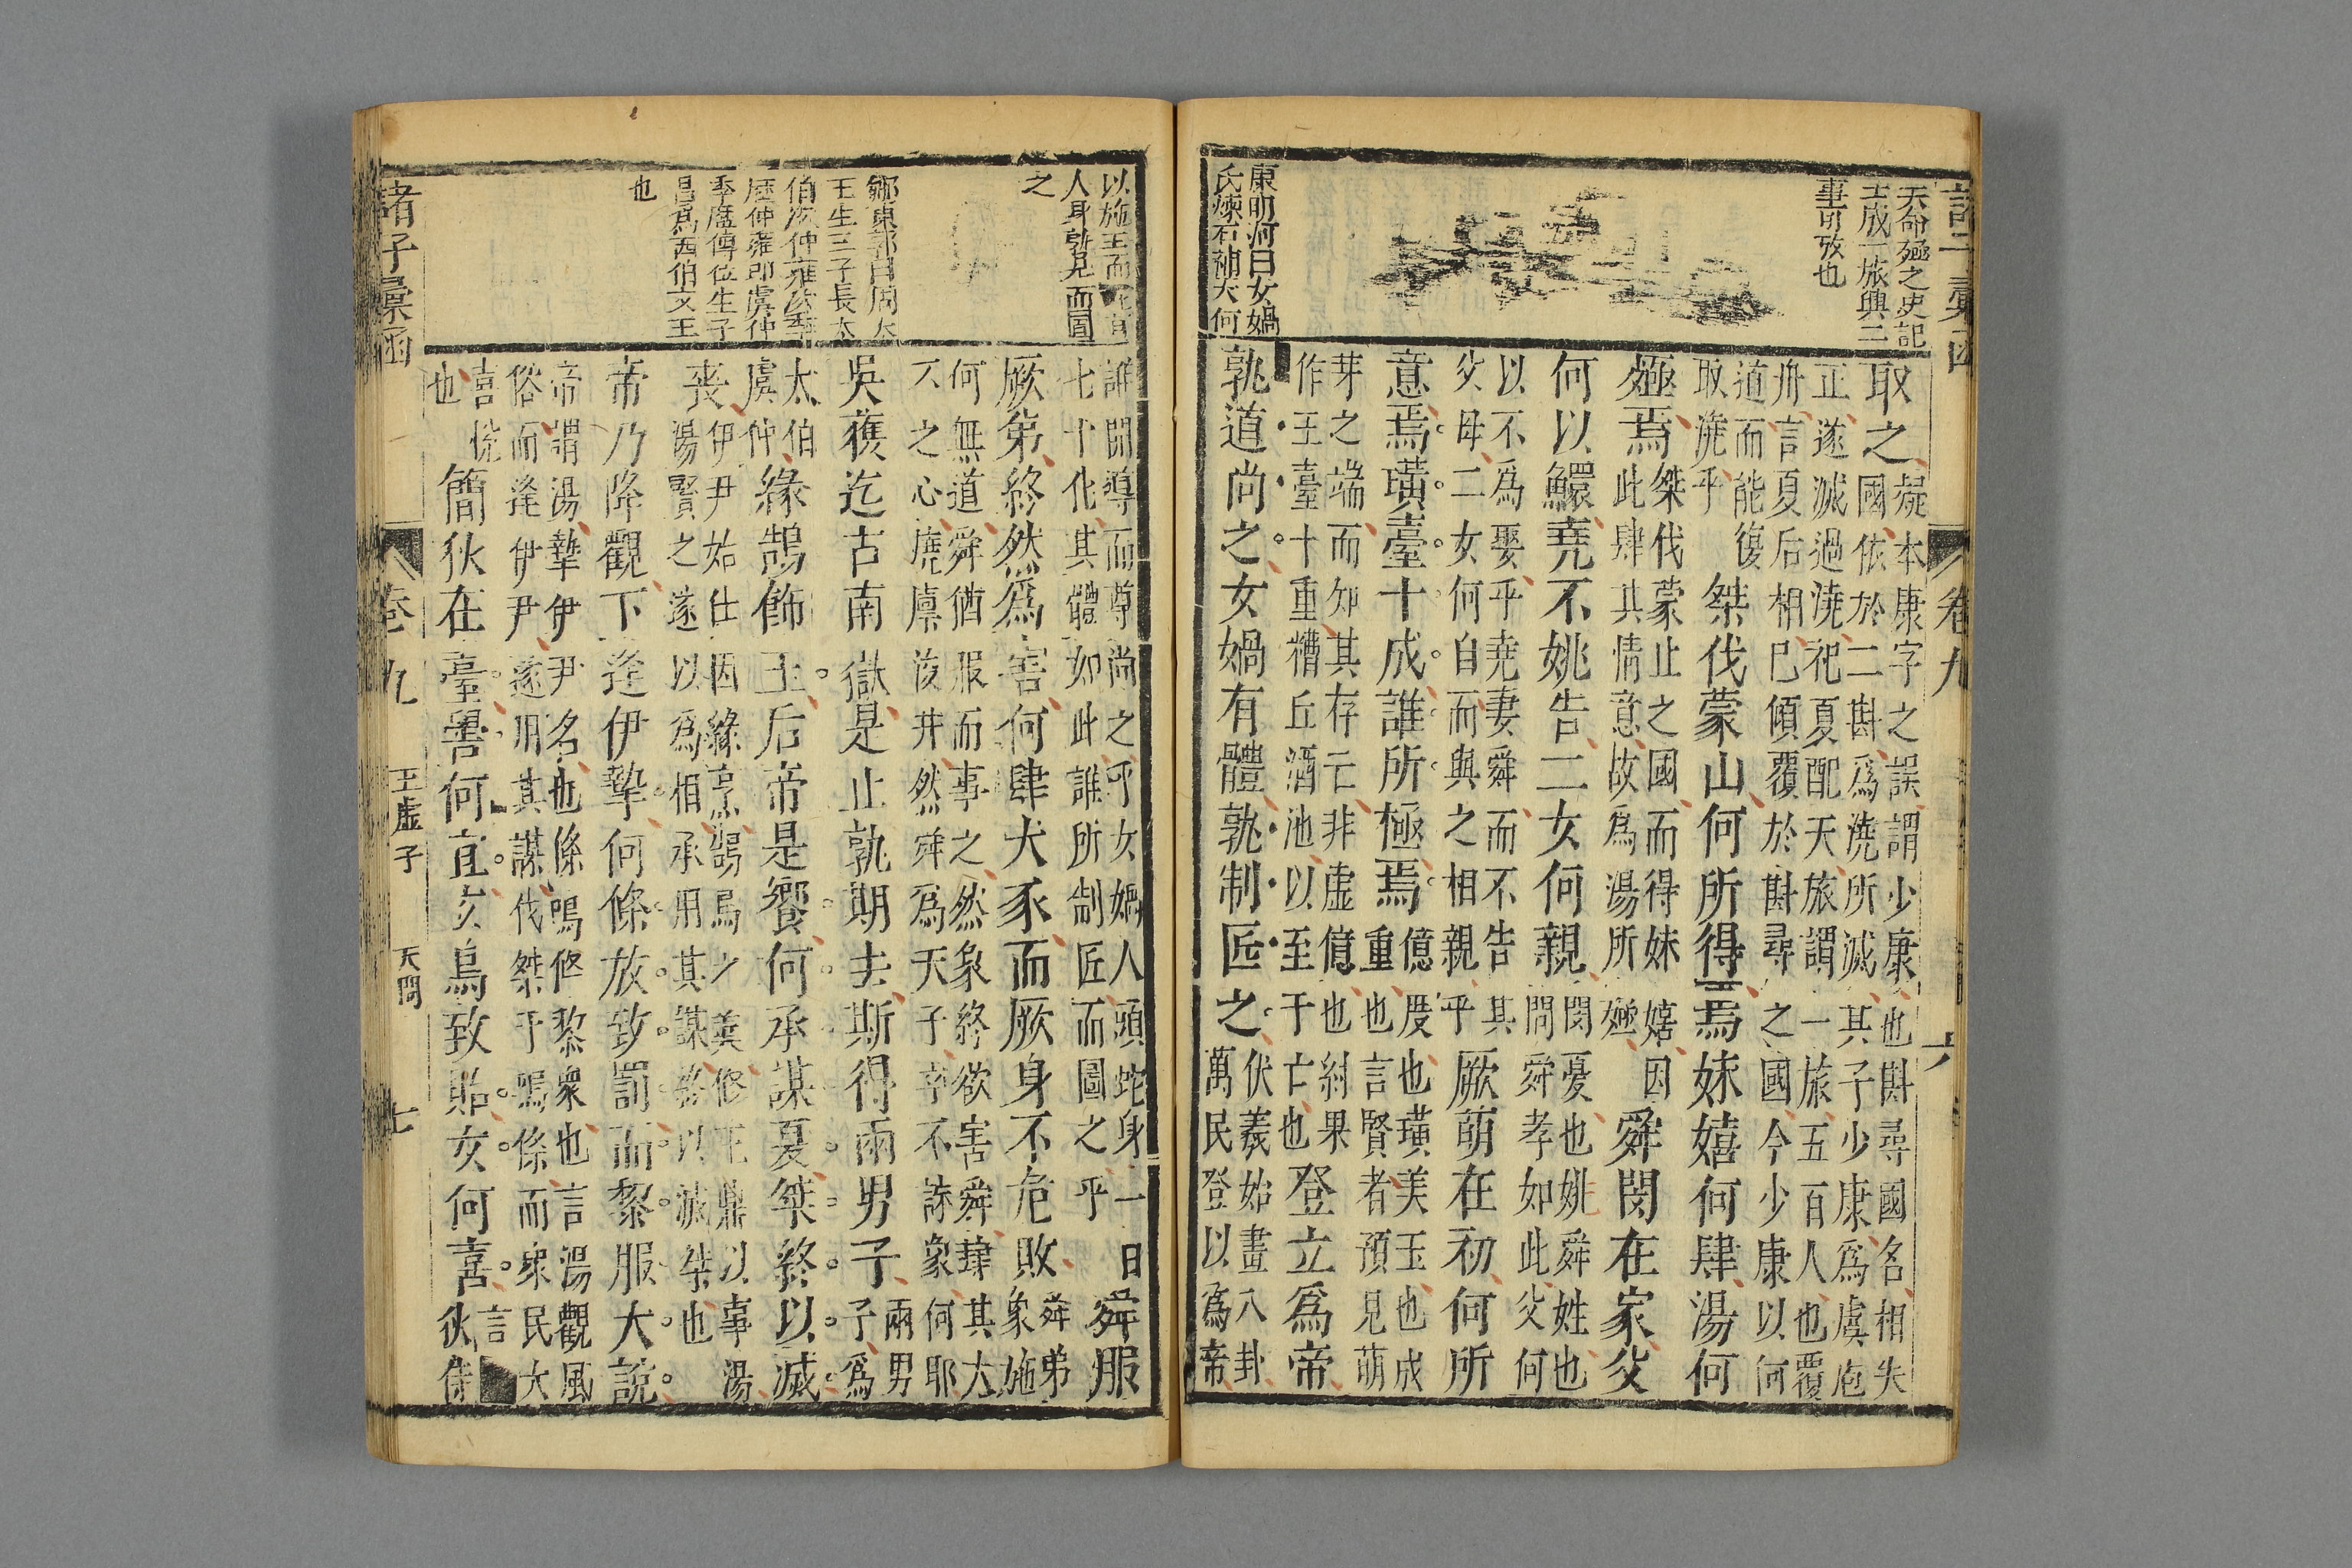 天命殛之史記
言成一旅興三
事可攷也
康明河曰女媧
氏煉石補天何
卷九
六
取之
疑本康字之誤謂少康也斟尋國名相失
國依於二斟爲澆所滅其子少康爲虞庖
正遂滅過澆祀夏配天旅謂一旅五百人也覆
舟言夏后相已傾覆於斟尋之國今少康以何
道而能復
取澆乎
桀伐蒙山何所得焉妹嬉何肆湯何
殛焉
桀伐蒙止之國而得妹嬉因
此肆其情意故爲湯所殛
舜閔在家父
何以鱞堯不姚告二女何親
閔憂也姚舜姓也
問舜孝如此父何
以不爲娶乎堯妻舜而不告其
父母二女何自而與之相親乎
厥萌在初何所
意焉璜臺十成誰所極焉
億度也璜美玉也成
重也言賢者預見萌
芽之端而知其存亡非虛億也紂果
作玉臺十重糟丘酒池以至于亡也
登立爲帝
孰道尚之女媧有體孰制匠之
伏羲始畫八卦
萬民登以爲帝
以施王而
人身孰見而圖
之
鄒東郭曰周太
王生三子長太
伯次仲雍
仲雍即虞仲
季歷傳位生子
昌爲西伯文王
也
誰開導而尊尚之乎女媧人頭蛇身一日
七十化其體如此誰所制匠而圖之乎
舜服
厥弟終然爲害何肆犬豕而厥身不危敗
舜弟
象施
何無道舜猶服而事之然象終欲害舜肆其大
之心廩浚井然舜爲天子卒不誅象何耶
吳獲迄古南嶽是止孰期去斯得兩男子
兩男
子爲
太伯
虞仲
緣鵠飾玉后帝是饗何承謀夏桀終以滅
喪伊尹始仕因緣烹鵠鳥之羹修玉鼎以事湯
湯賢之遂以爲相承用其謀以滅桀也
帝乃降觀下逢伊摯何條放致罰而黎服大說
帝謂湯摯伊尹名也條鳴條黎眾也言湯觀風
俗而逢伊尹遂用其謀伐桀于鳴條而眾民大
喜悅
也
簡狄在臺嚳何宜玄鳥致貽女何喜
言
狄侍
諸子彙函
卷九
玉虛子
天問
七